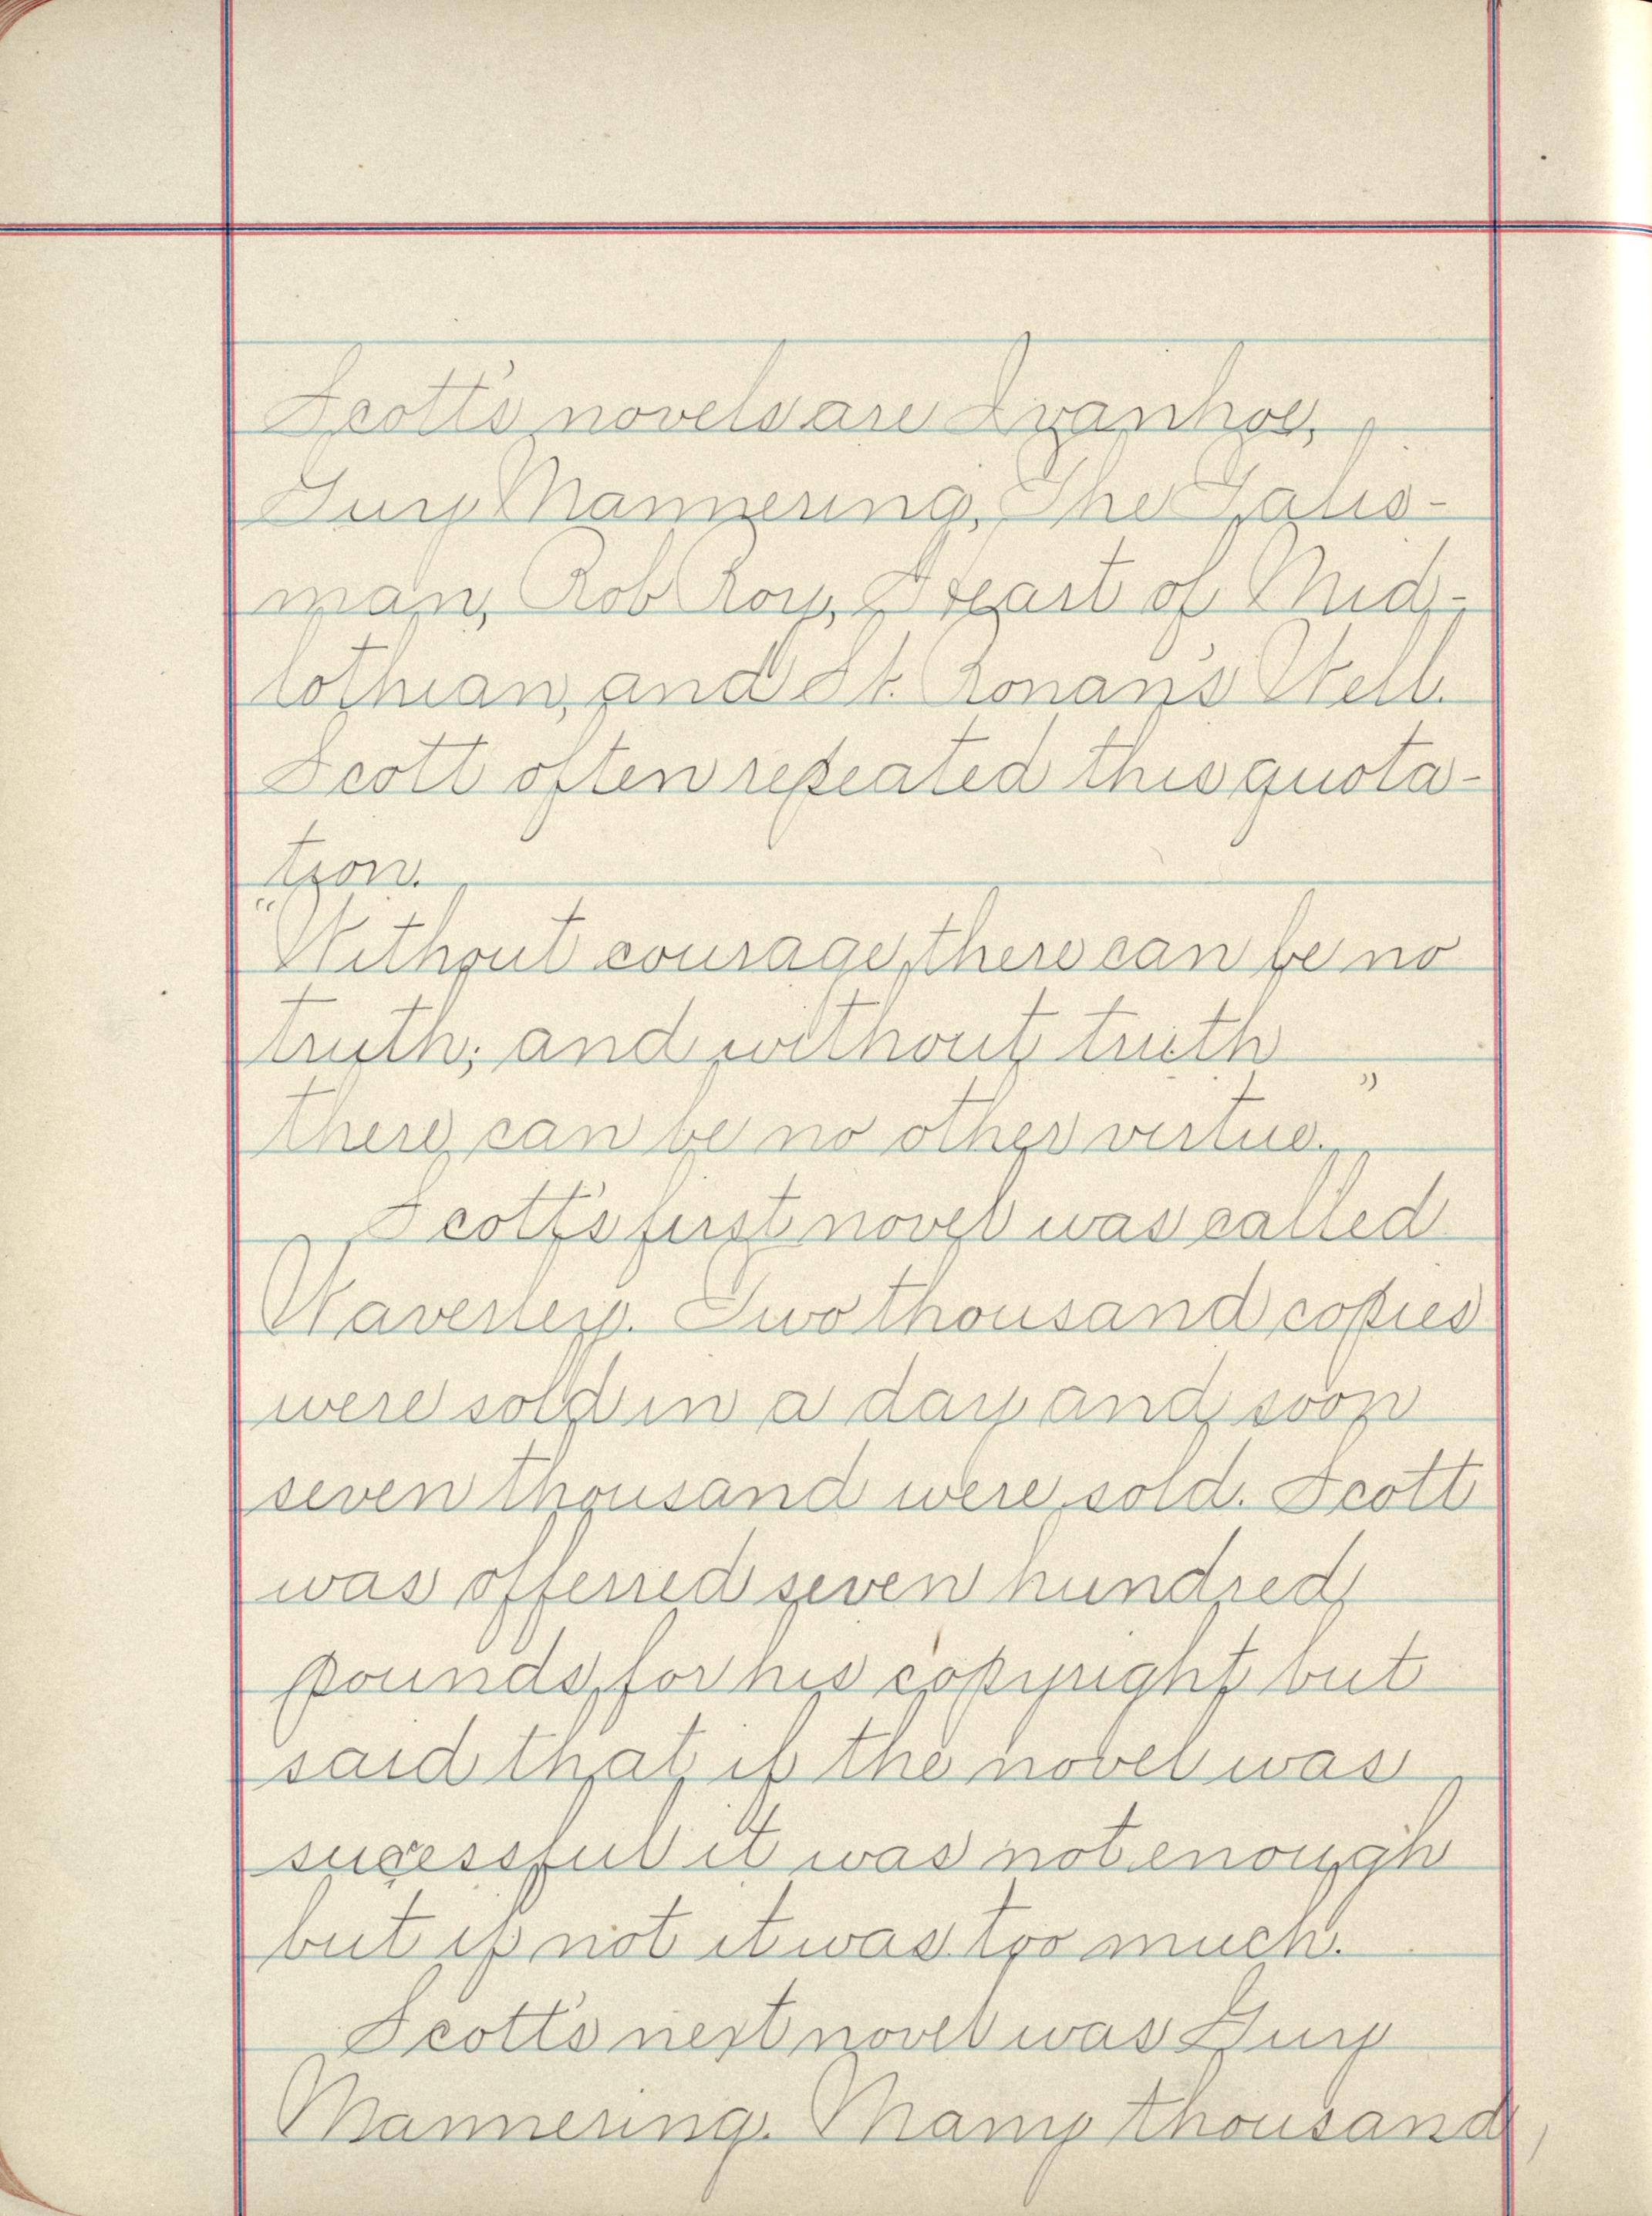 Scott's novels are Ivanhoe,
Guy Mannering, The Talis-
man, Rob Roy, Heart of Mid-
lothian, and St. Ronan's Well.
Scott often repeated this quota-
tion.
"Without courage, there can be no
truth; and without truth
there can be no other virtue."
Scott's first novel was called
Waverley. Two thousand copies
were sold in a day and soon
seven thousand were sold. Scott
was offerred seven hundred
pounds for his copyright but
said that if the novel was
sucessful it was not enough
but if not it was too much.
Scott's next novel was Guy
Mannering. Many thousand